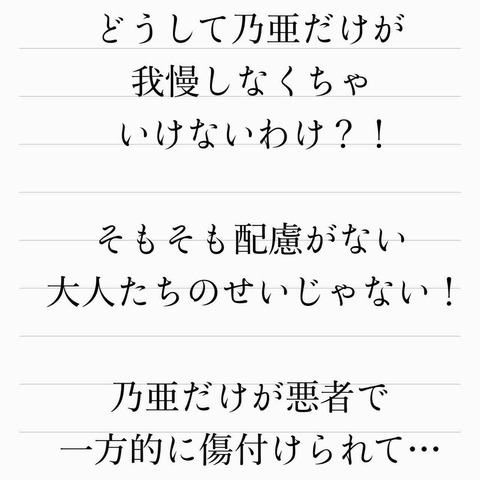 どうして乃亜だけが
我慢しなくちゃ
いけないわけ？！
そもそも配慮がない
大人たちのせいじゃない！
乃亜だけが悪者で
一方的に傷付けられて…